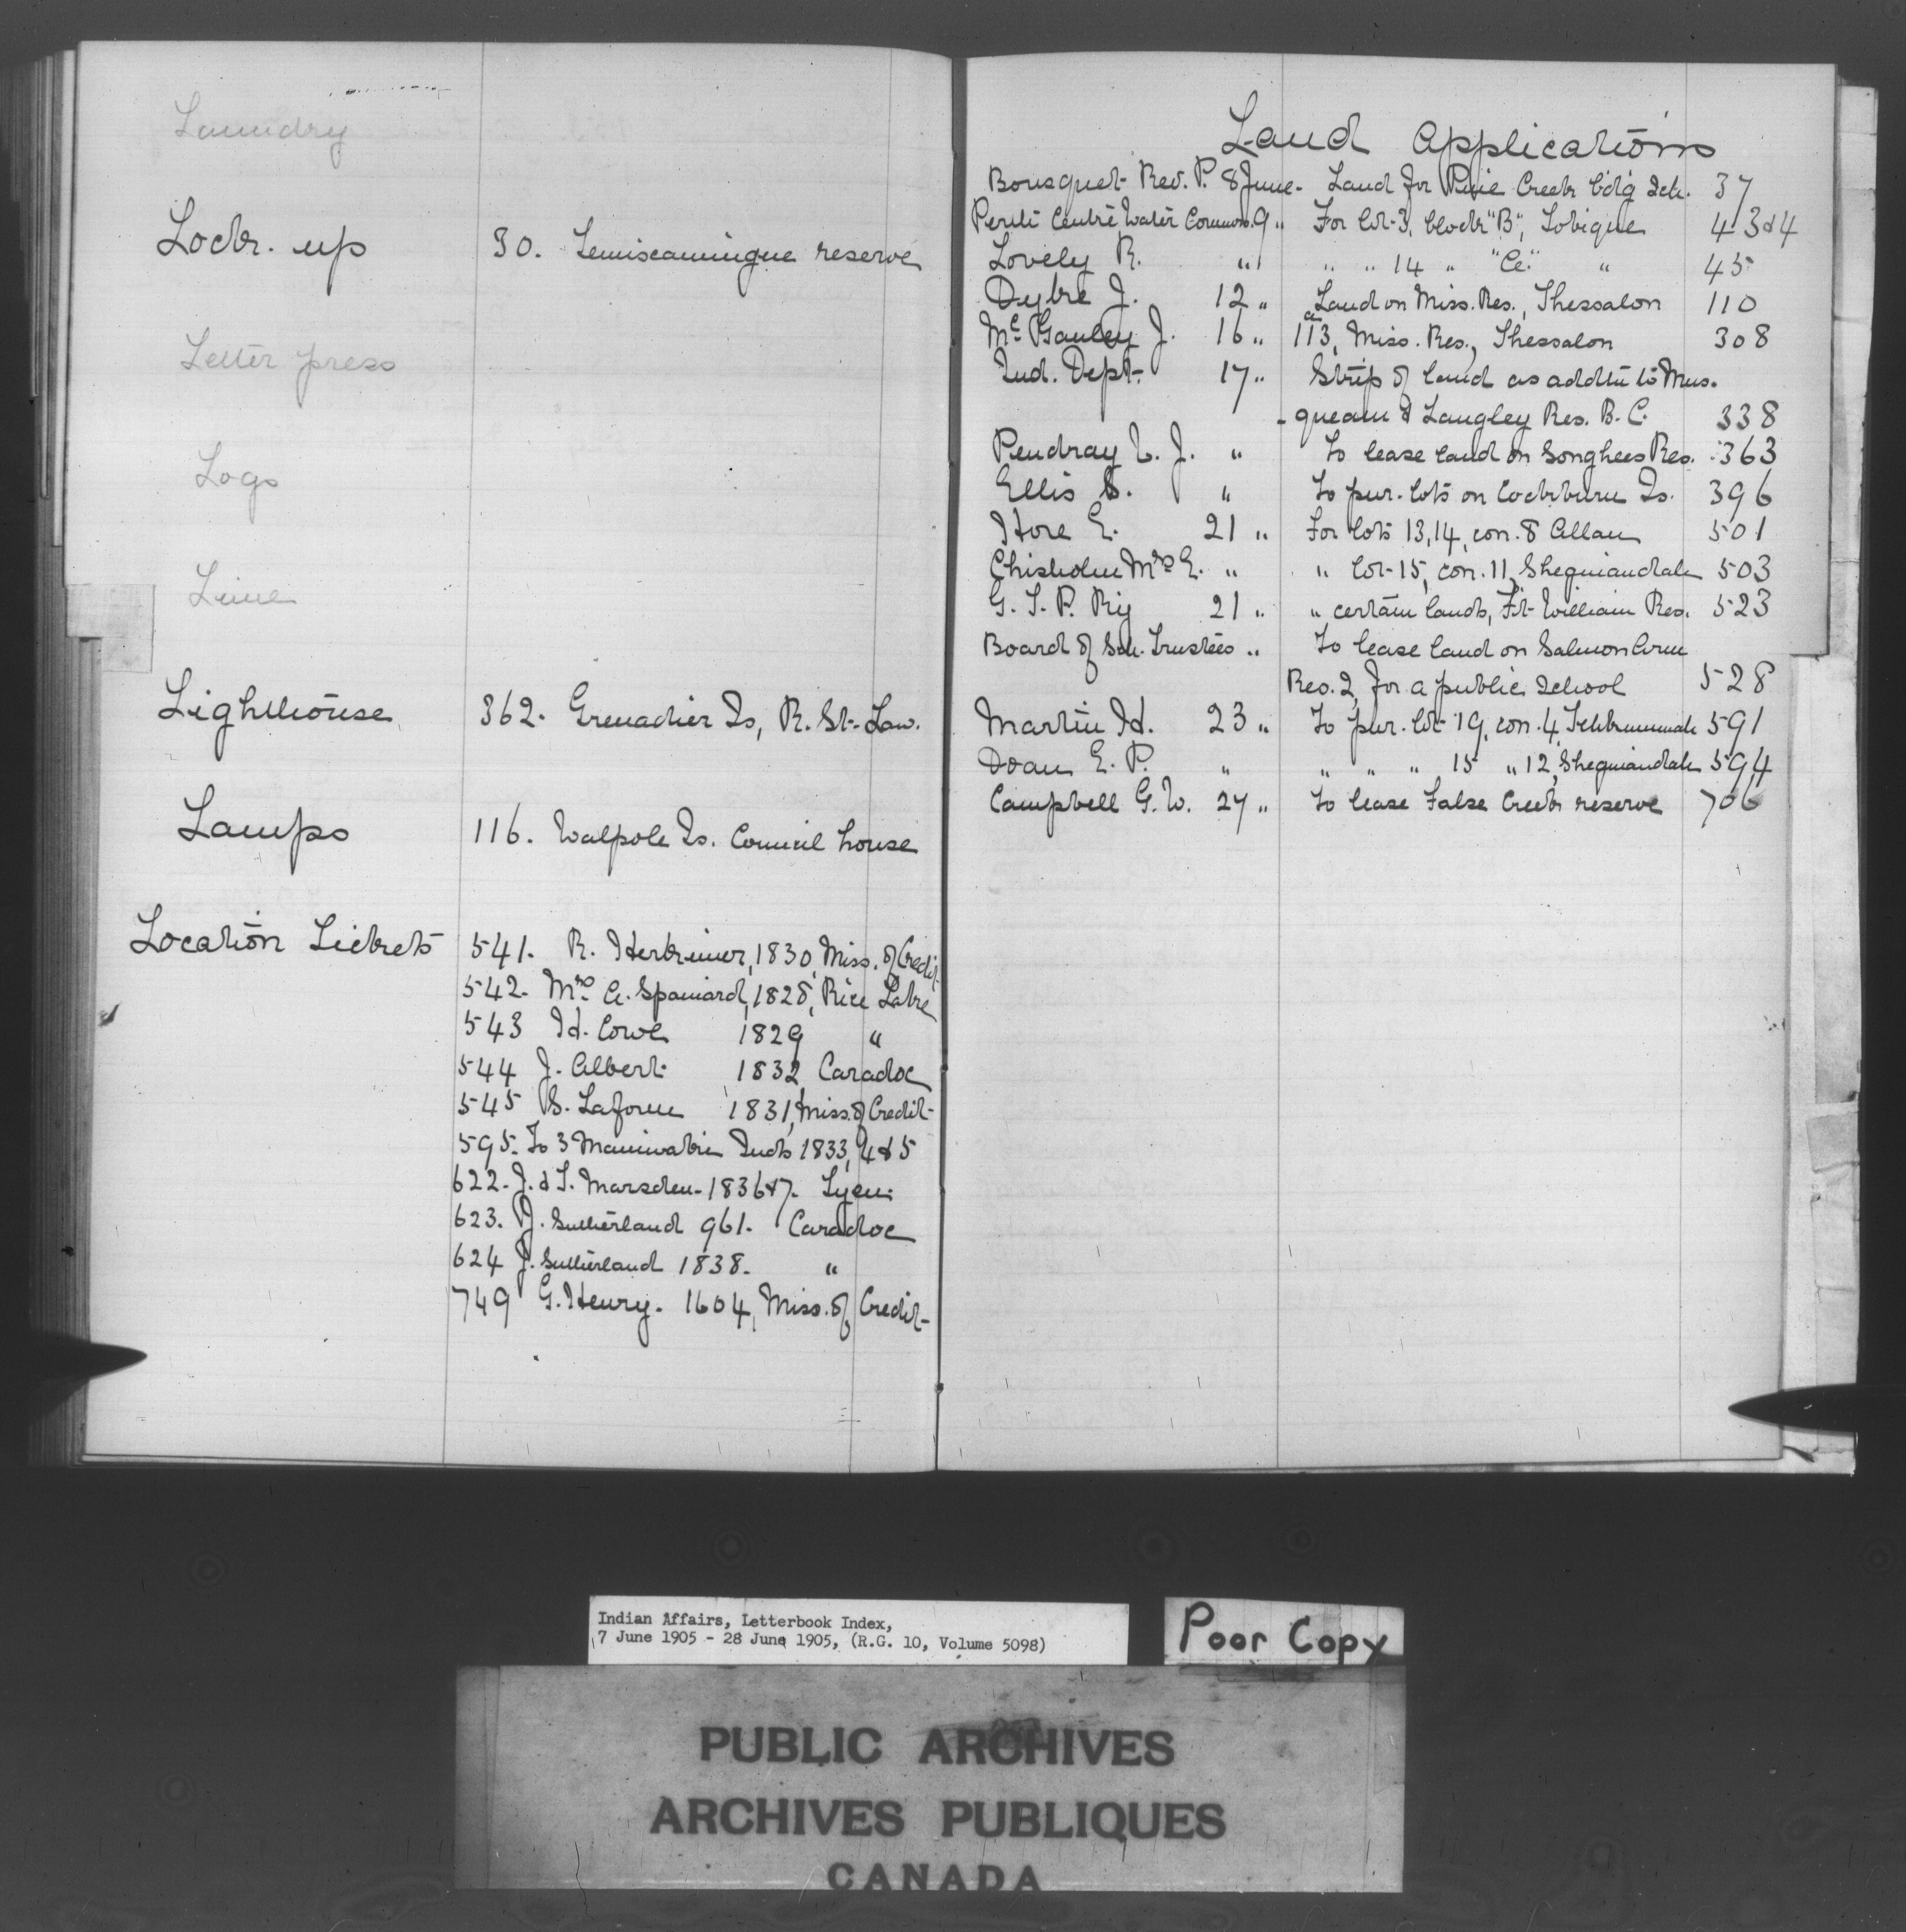 Laundry
Lock. up 30. Temiscamingue reserve
Letter press
Logs
Lime
Lighthouse 362. Grenadier Is, R. St. Law.
Lamps 116. Walpole Is. Council house
Location Tickets 541. R. Herkimer, 1830, Miss. of Credit
542. Mrs. A. Spaniard, 1828, Rice Lake
543 H. Cowe 1829 "
544 J. Albert 1832 Caradoc
545 S. Laforme 1831, Miss. of Credit
595. To 3 Maniwaki Inds 1833, 4 & 5
622. J. & T. Marsden. 1836 & 7. Tyen.
623. J. Sutherland 961. Caradoc
624 J. Sutherland 1838. "
749 G. Henry. 1604, Miss. of Credit
Land Applications
Bousquet Rev. P. 8 June. Land for Pine Creek b'd'g Sch. 37
Perth Centre Water Commrs. 9 " For lot 3, block "B", Tobique 43 & 4
Lovely R. " " " " 14 " "A" " 45
Dyke J. 12 " Land on Miss. Res., Thessalon 110
McGauley J. 16 " 113a, Miss. Res., Thessalon 308
Ind. Dept. 17 " Strip of land as addtn to Mus-
-queam & Langley Res. B. C. 338
Pendray J. " To lease land on Songhees Res. 363
Ellis S. " To pur. lots on Cockburn Is. 396
Hore E. 21 " For lots 13, 14, con. 8 Allan 501
Chisholm Mrs E. " " lot 15, con. 11, Sheguiandah 503
G. T. P. Ry 21 " " certain lands, Ft William Res. 523
Board of Sch. Trustees " To lease land on Salmon Arm
Res. 2, for a public School 528
Martin H. 23 " To pur. lot 19, con. 4, Tehkummah 591
Doan E. P. " " " " 15 " 12, Sheguiandah 594
Campbell G. W. 27 " To lease False Creek reserve 706
Indian Affairs, Letterbook Index,
7 June 1905 - 28 June 1905, (R.G. 10, Volume 5098)
Poor Copy
PUBLIC ARCHIVES
ARCHIVES PUBLIQUES
CANADA